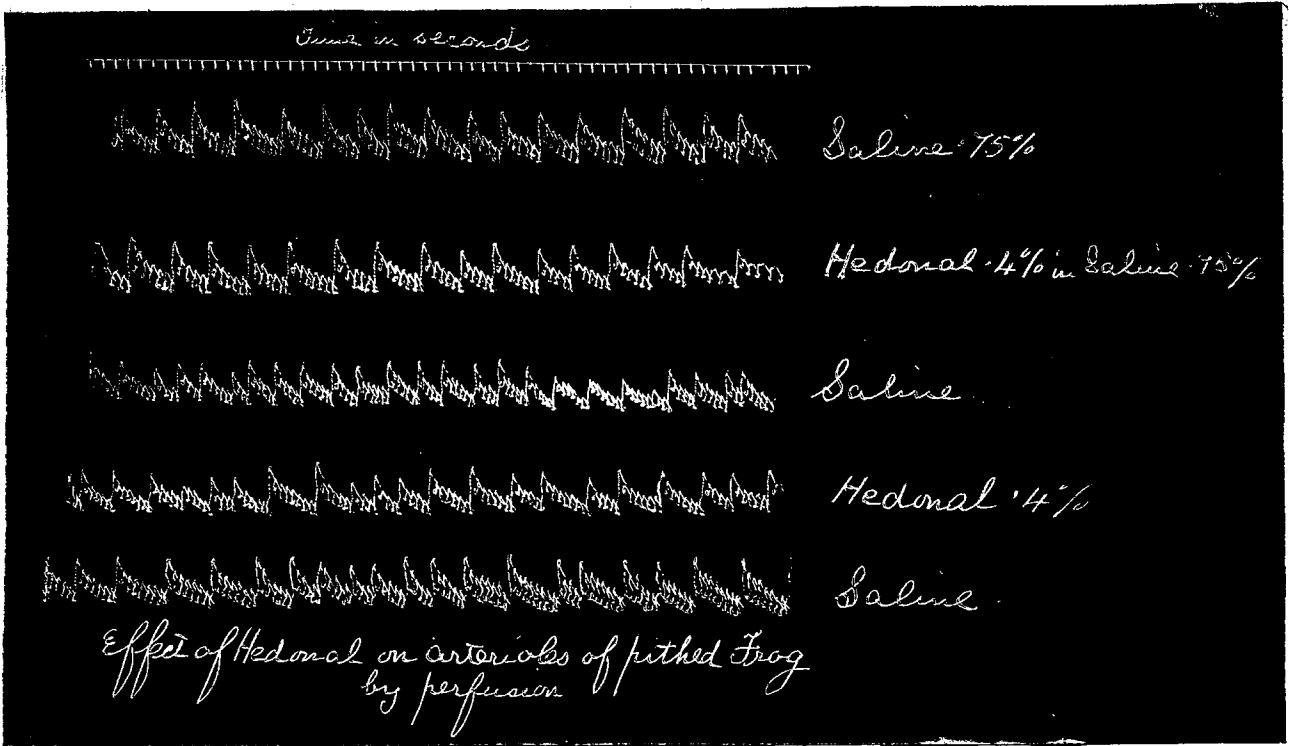 Time in seconds
Saline ·75%
Hedonal ·4% in Saline ·75%
Saline
Hedonal ·4%
Saline.
Effect of Hedonal on arterioles of pithed Frog
by perfusion